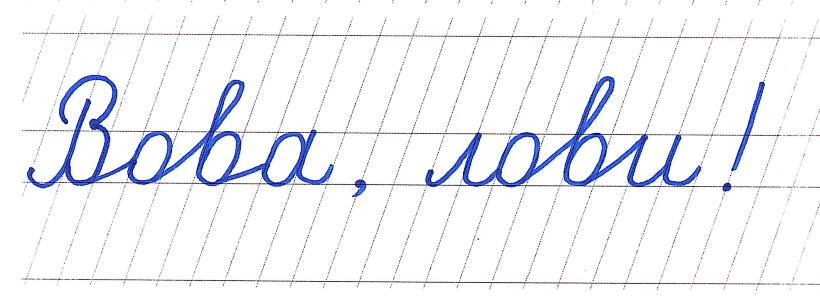 Вова, лови!